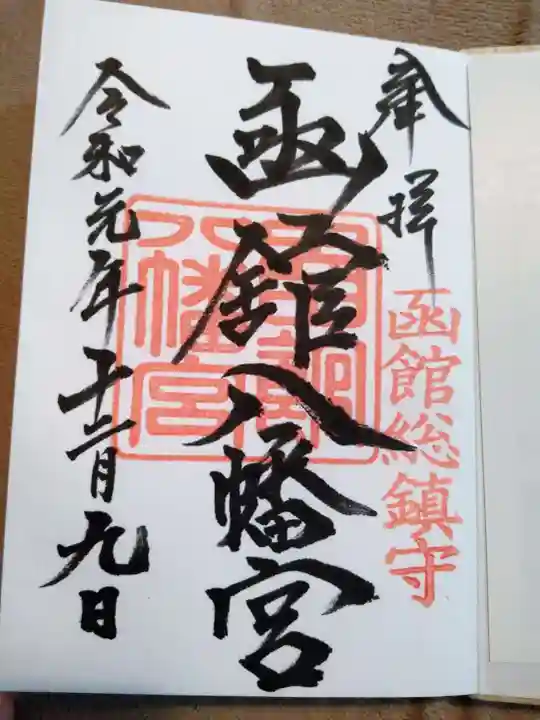 奉拝
函館総鎮守
函館八幡宮
八幡宮
令和元年十二月九日